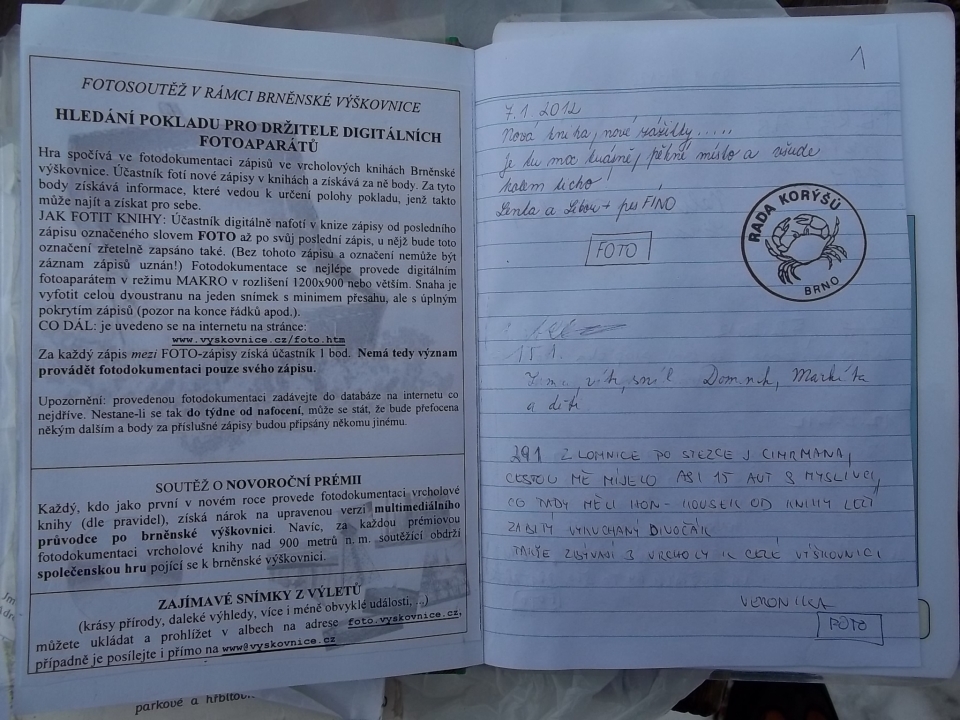 FOTOSOUTĚŽ V RÁMCI BRNĚNSKÉ VÝŠKOVNICE
HLEDÁNÍ POKLADU PRO DRŽITELE DIGITÁLNÍCH
FOTOAPARÁTŮ
Hra spočívá ve fotodokumentaci zápisů ve vrcholových knihách Brněnské
výškovnice. Účastník fotí nové zápisy v knihách a získává za ně body. Za tyto
body získává informace, které vedou k určení polohy pokladu, jenž takto
může najít a získat pro sebe.
JAK FOTIT KNIHY: Účastník digitálně nafotí v knize zápisy od posledního
zápisu označeného slovem FOTO až po svůj poslední zápis, u nějž bude toto
označení zřetelně zapsáno také. (Bez tohoto zápisu a označení nemůže být
záznam zápisů uznán!) Fotodokumentace se nejlépe provede digitálním
fotoaparátem v režimu MAKRO v rozlišení 1200x900 nebo větším. Snaha je
vyfotit celou dvoustranu na jeden snímek s minimem přesahu, ale s úplným
pokrytím zápisů (pozor na konce řádků apod.).
CO DÁL: je uvedeno se na internetu na stránce:
www.vyskovnice.cz/foto.htm
Za každý zápis mezi FOTO-zápisy získá účastník 1 bod. Nemá tedy význam
provádět fotodokumentaci pouze svého zápisu.
Upozornění: provedenou fotodokumentaci zadávejte do databáze na internetu co
nejdříve. Nestane-li se tak do týdne od nafocení, může se stát, že bude přefocena
někým dalším a body za příslušné zápisy budou připsány někomu jinému.
SOUTĚŽ O NOVOROČNÍ PRÉMII
Každý, kdo jako první v novém roce provede fotodokumentaci vrcholové
knihy (dle pravidel), získá nárok na upravenou verzi multimediálního
průvodce po brněnské výškovnici. Navíc, za každou prémiovou
fotodokumentaci vrcholové knihy nad 900 metrů n. m. soutěžící obdrží
společenskou hru pojící se k brněnské výškovnici.
ZAJÍMAVÉ SNÍMKY Z VÝLETŮ
(krásy přírody, daleké výhledy, více i méně obvyklé události, ...)
můžete ukládat a prohlížet v albech na adrese foto.vyskovnice.cz,
případně je posílejte i přímo na www@vyskovnice.cz
parkové a hřbitov
1
7.1.2012
Nová kniha, nové zážitky.....
Je tu moc krásně, pěkné místo a všude
kolem ticho
Lenka a Libor + pes FÍNO
FOTO
RADA KORÝŠŮ
BRNO
15 1.
Zima, vítr, sníh Dominik, Markéta
a děti
29.1 Z LOMNICE PO STEZCE J CIMRMANA,
CESTOU MĚ MÍJELO ASI 15 AUT S MYSLIVCI,
CO TADY MĚLI HON - KOUSEK OD KNIHY LEŽÍ
ZABITÝ VYKUCHANÝ DIVOČÁK
TAKŽE ZBÝVAJÍ 3 VRCHOLY K CELÉ VÝŠKOVNICI
VERONIKA
FOTO